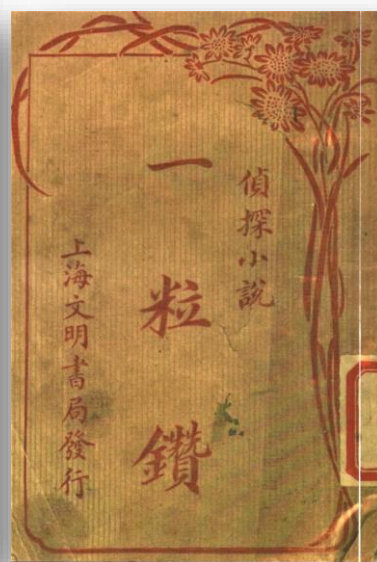 偵探小說
一粒鑽
上海文明書局發行